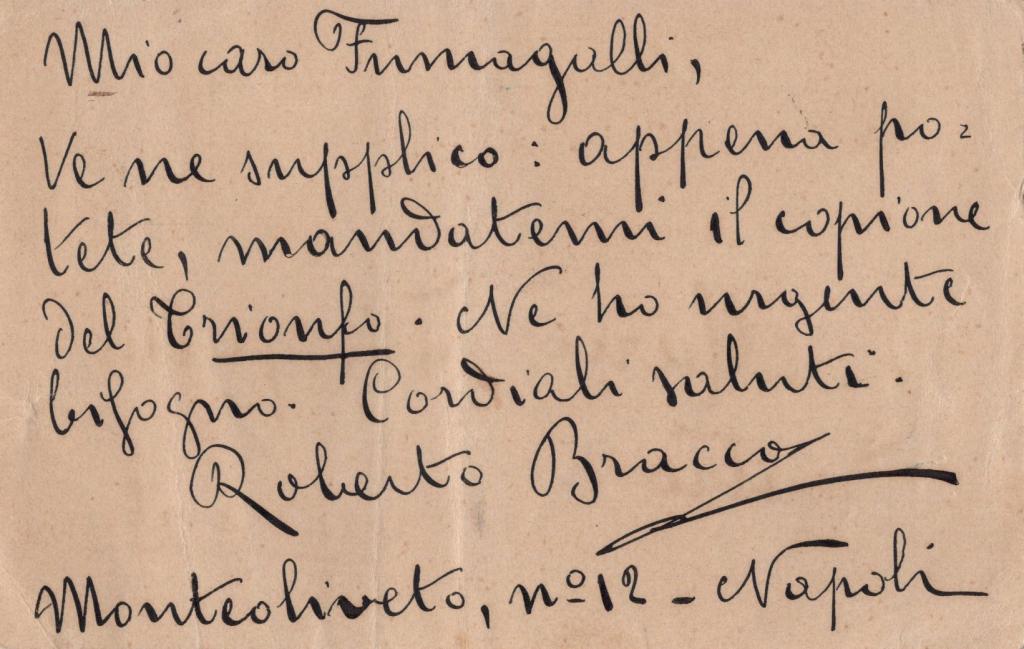 Mio caro Fumagalli,
Ve ne supplico: appena po=
tete, mandatemi il copione
del Trionfo. Ne ho urgente
bisogno. Cordiali saluti.
Roberto Bracco
Monteoliveto, nº 12 - Napoli